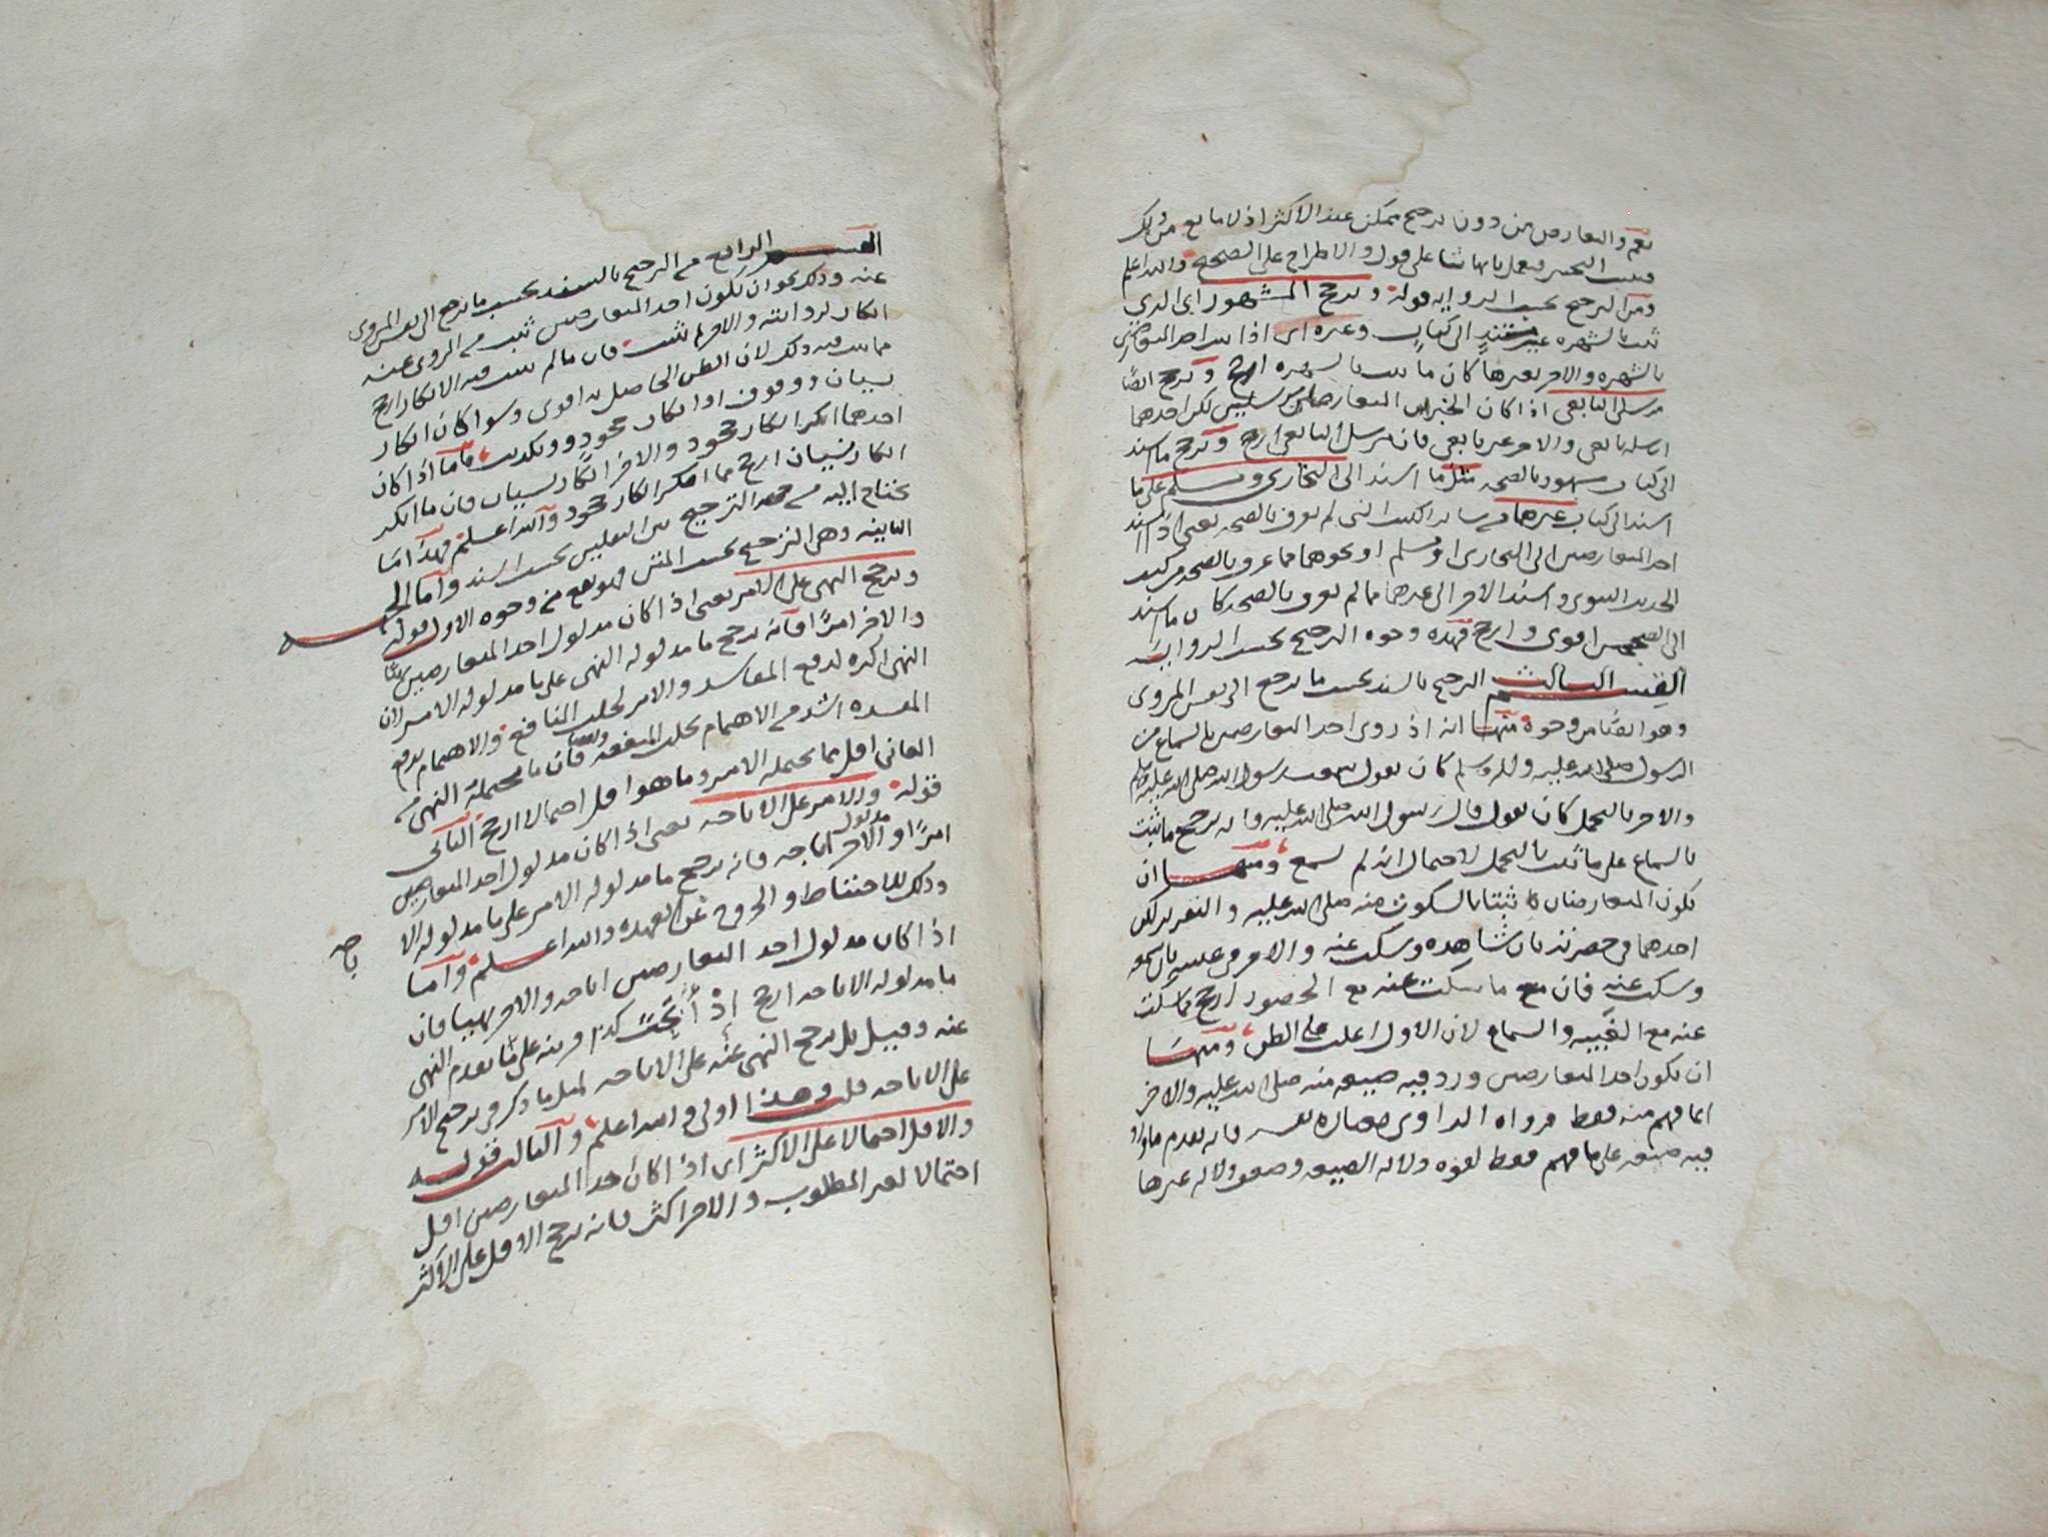 نعم والتعارض من دون ترجيح ممكن عند الأكثر اذ لا مانع من ذلك
فيثبت التخيير فيعمل بايهما شا على قول والاطراح على الصحيح والله اعلم
ومن الترجيح بحسب الرواية قوله ويرجح المشهور اي الذي
ثبت بالشهره غير مستند الى كتاب وغيره اي اذا ثبت احد المتعارضين
بالشهره والاخر بغيرها كان ما ثبت بالشهره ارجح ويرجح ايضًا
مرسل التابعي اذا كان الخبران المتعارضان مرسلين لكن احدهما
ارسله تابعي والاخر غير تابعي فان مرسل التابعي ارجح ويرجح ما اسند
الى كتاب مشهور بالصحه مثل ما اسند الى البخاري ومسلم على ما
اسند الى كتاب غيرهما من سائر الكتب التي لم تعرف بالصحه يعني اذا اسند
احد المتعارضين الى البخاري او مسلم او نحوهما مما عرف بالصحه من كتب
الحديث النبوي واسند الاخر الى غيرهما مما لم يعرف بالصحه كان ما اسند
الى الصحيحين اقوى وارجح فهذه وجوه الترجيح بحسب الروايه
القسم الثالث الترجيح بالسند بحسب ما يرجع الى نفس المروي
وهو ايضًا من وجوه منها انه اذا روى احد المتعارضين بالسماع من
الرسول صلى الله عليه واله وسلم كان يقول سمعت رسول الله صلى الله عليه وسلم
والاخر بالمحتمل كان يقول قال رسول الله صلى الله عليه فانه يرجح ما ثبت
بالسماع على ما ثبت بالمحتمل لاحتمال انه لم يسمع ومنها ان
يكون المتعارضان ثبتا بالسكوت منه صلى الله عليه والتقرير لكن
احدهما في حضرته بان شاهده وسكت عنه والاخر في غيبته بان سمعه
وسكت عنه فان ما سكت عنه مع الحضور ارجح مما سكت
عنه مع الغيبه والسماع لان الاول اغلب على الظن ومنها
ان يكون احد المتعارضين ورد فيه صيغه منه صلى الله عليه والاخر
انما فهم منه فقط فرواه الراوي بعبارة نفسه فانه يقدم ما ورد
فيه صيغه على ما فهم فقط لقوه دلاله الصيغه وضعف دلاله غيرها
القسم الرابع من الترجيح بالسند بحسب ما يرجع الى نفس المروي
عنه وذلك نحو ان يكون احد المتعارضين ثبت من المروي عنه
انكار لروايته والاخر لم يثبت فان ما لم يثبت فيه الانكار ارجح
مما ثبت فيه ذلك لان الظن الحاصل به اقوى وسوا كان انكار
نسيان ووقوف او انكار جحود وتكذيب فاما اذا كان
احدهما انكر انكار جحود والاخر انكار نسيان فان ما انكر
انكار نسيان ارجح مما انكر انكار جحود والله اعلم فهذا ما
يحتاج اليه من الترجيح بين النقليين بحسب السند واما الجهه
الثانيه وهي الترجيح بحسب المتن فهو يقع من وجوه الاول قوله
ويرجح النهي على الامر يعني اذا كان مدلول احد المتعارضين نهيًا
والاخر امرًا فانه يرجح ما مدلوله النهي على ما مدلوله الامر لان
النهي اكثره لدفع المفاسد والامر لجلب المنافع والاهتمام بدفع
المفسده اشد من الاهتمام بجلب المنفعه فان ما يحتمله النهي من
المعاني اقل مما يحتمله الامر وما هو اقل احتمالا ارجح الثاني
قوله والامر على الاباحه يعني اذا كان مدلول احد المتعارضين
امرًا ومدلول الاخر اباحه فانه يرجح ما مدلوله الامر على ما مدلوله الا
باحه
وذلك للاحتياط والخروج عن العهده والله اعلم واما
اذا كان مدلول احد المتعارضين اباحه والاخر نهيا فان
ما مدلوله الاباحه ارجح
عنه وقيل بل يرجح النهي على الاباحه لمثل ما ذكر في ترجيح الامر
على الاباحه قلت وهذا اولى والله اعلم والثالث قوله
والاقل احتمالا على الاكثر اي اذا كان احد المتعارضين اقل
احتمالا لغير المطلوب والاخر اكثر فانه يرجح الاقل على الاكثر